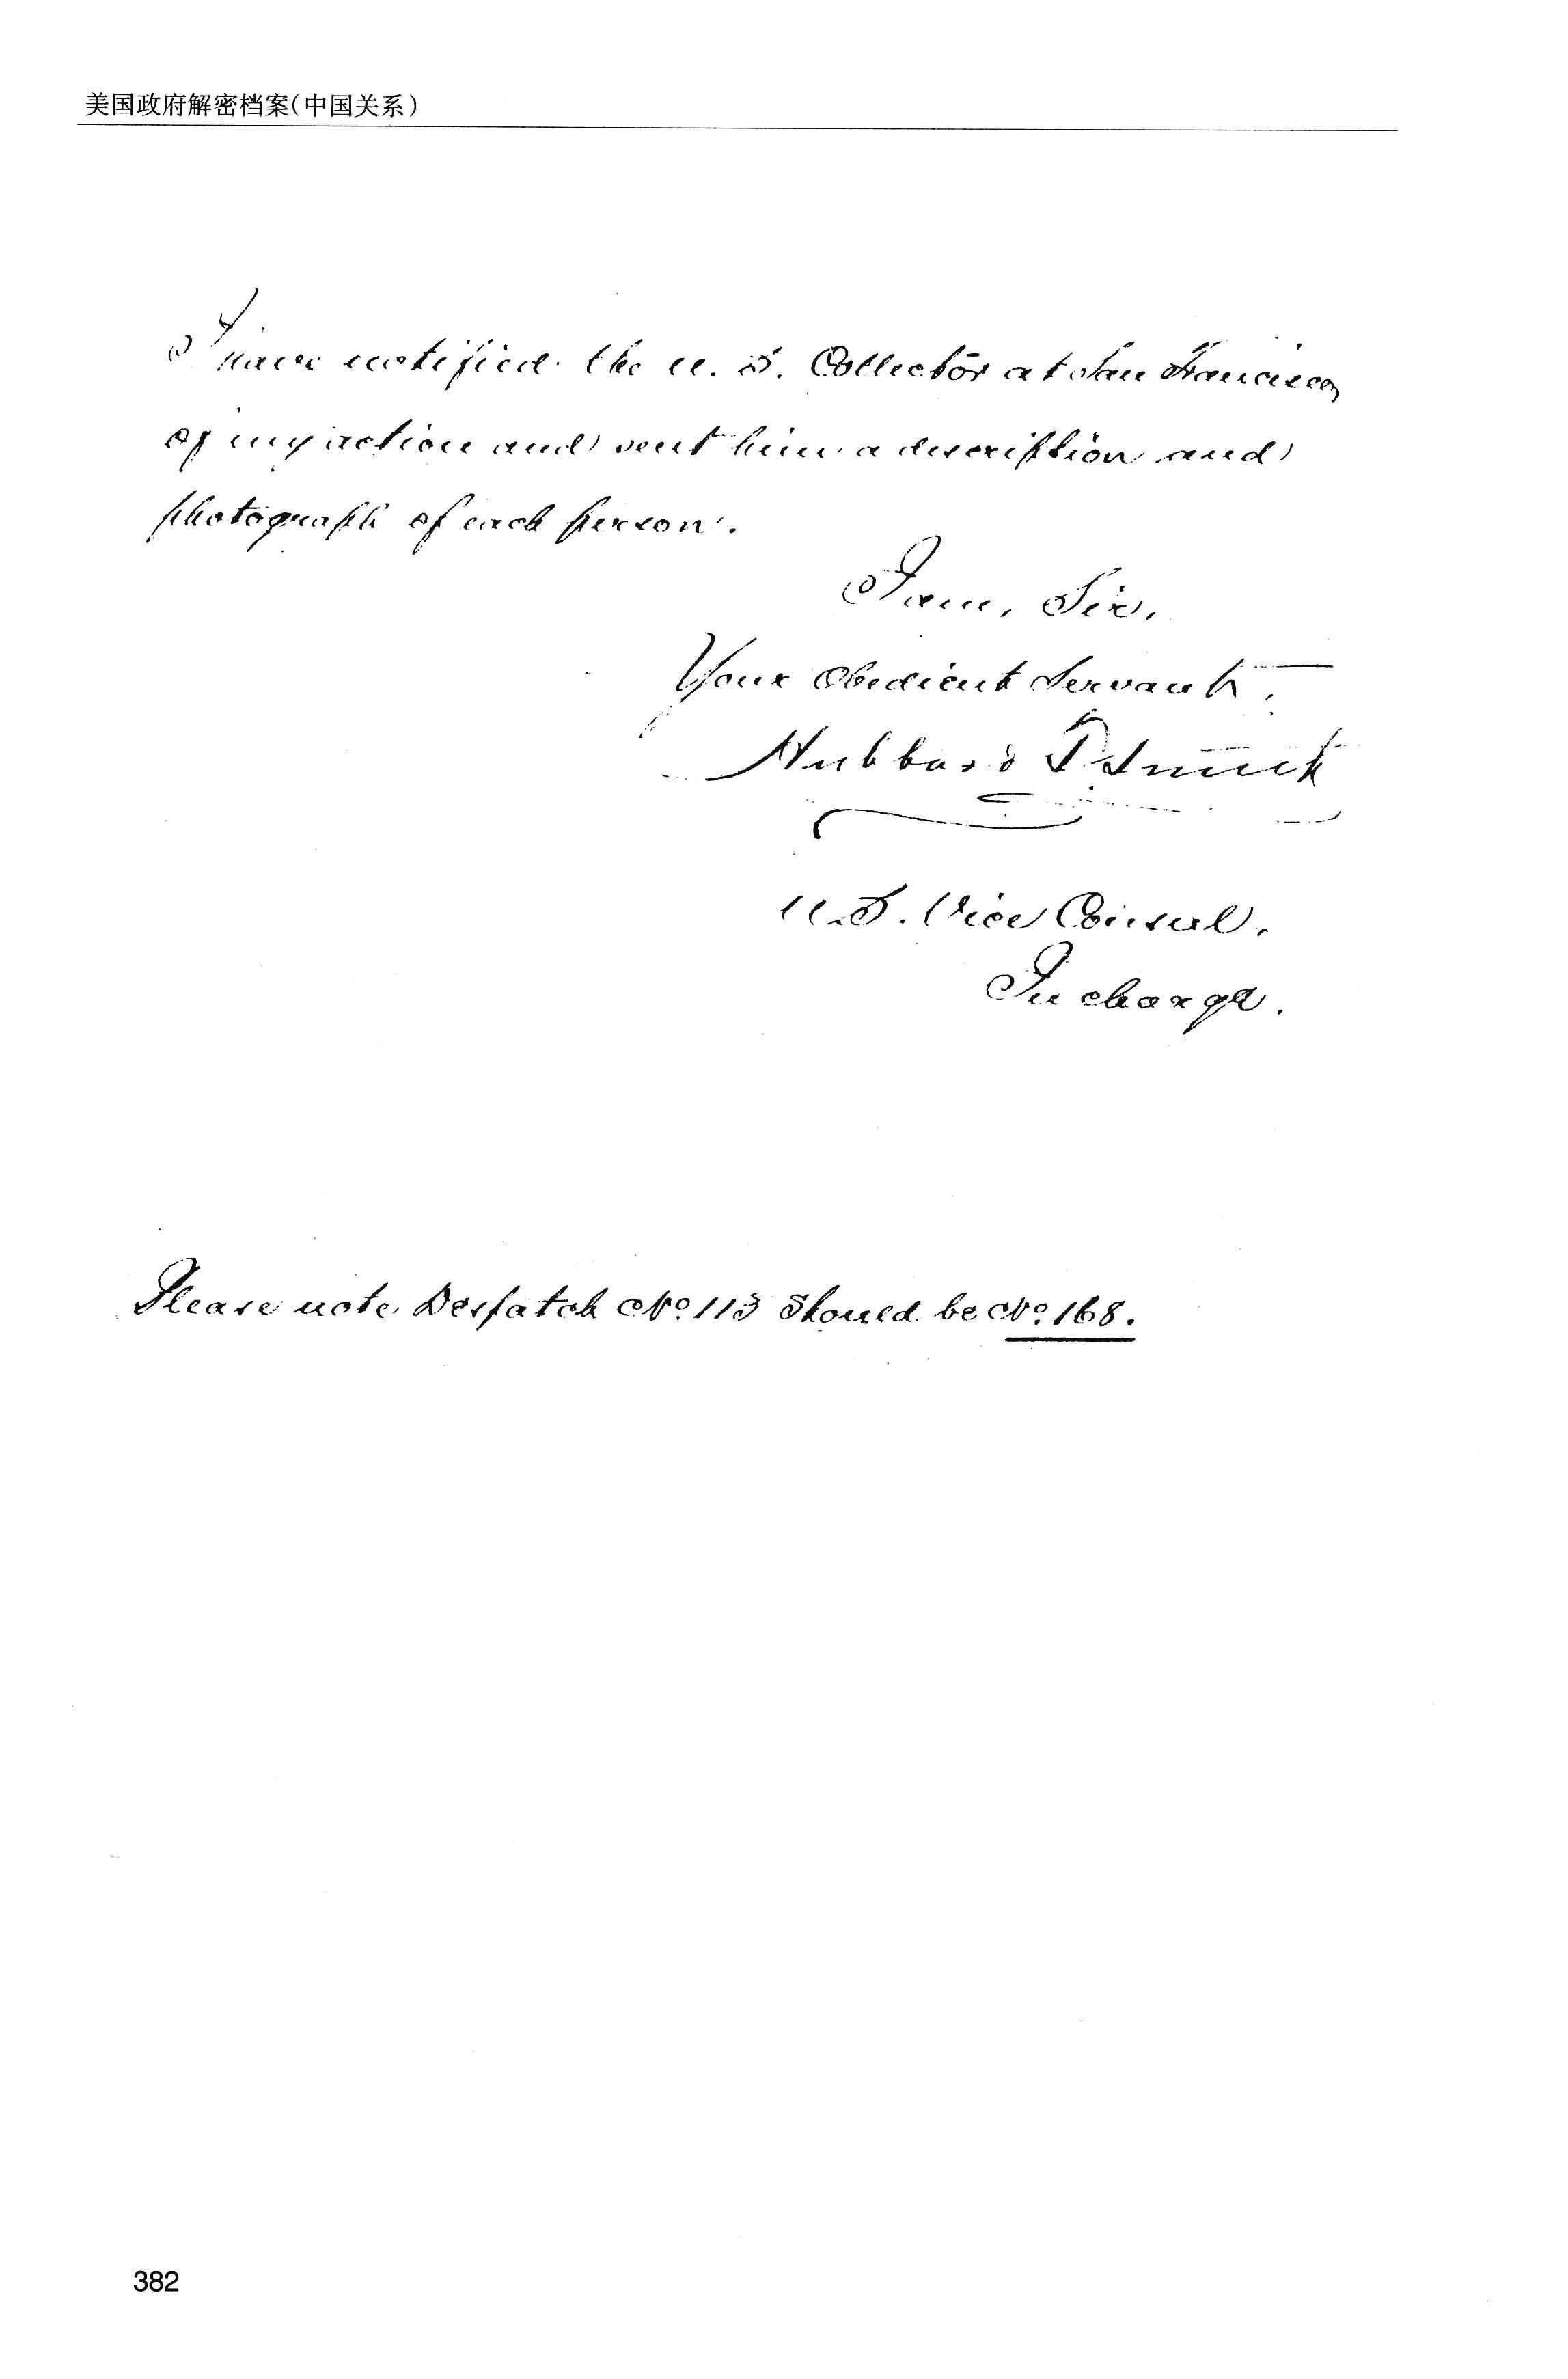 美国政府解密档案(中国关系)
I have notified the U. S. Collector at San Francisco
of my action and sent him a description and
photograph of each person.
I am, Sir,
Your Obedient Servant,
Hubbard T. Smith
U.S. Vice Consul.
In charge.
Please note Despatch No. 113 Should be No. 168.
382